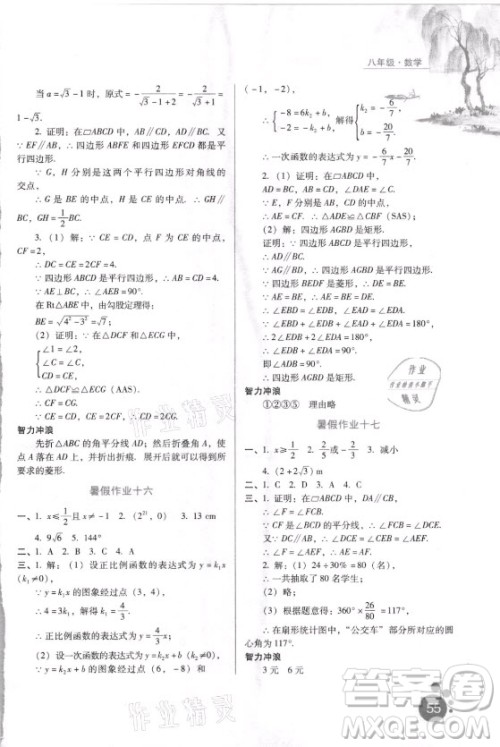 八年级·数学
当 a=√3-1 时，原式=-2/(√3-1+2)=-2/(√3+1)=
1-√3.
2. 证明：在▱ABCD 中，AB∥CD，AD∥BC，
∵ EF∥AB，∴ 四边形 ABFE 和四边形 DCFE 都是平
行四边形.
∵ G，H 分别是这两个平行四边形对角线的交
点，∴ G 是 BE 的中点，H 是 CE 的中点，∴ GH∥
BC，GH=1/2BC.
3.（1）解：∵ 四边形 DCFE 是平行四边形，点
CF=2，
∴ DC=CE=2CF=4.
∵ 四边形 ABCD 是平行四边形，∴ AB=CD=4.
∵ AE⊥BC，∴ ∠AEB=90°.
在 Rt△ABE 中，由勾股定理得：
BE=√(4²-3²)=√7；
（2）证明：∵ 在△DCF 和△ECG 中，
∠1=∠2，
∠C=∠C
CF=CG
∴ △DCF≌△ECG（AAS）.
∴ CE=CD.
智力冲浪
先折△ABC 的角平分线 AD；然后折叠角 A，使点
A 与点 D 重合，并折出折痕. 展开所得四边形就是所
要求的菱形.
暑假作业十六
一、1. x≤1/2且 x≠-1 2.（2²¹，0） 3. 13 cm
4. 9√6 5. 144°
二、1. A 2. B 3. C 4. A
三、1.（1）设正比例函数的表达式为 y=k₁x
（k₁≠0），
∵ y=k₁x 的图象经过点（3，4），
∴ 4=3k₁，解得 k₁=4/3.
∴ 正比例函数的表达式为 y=4/3x.
（2）设一次函数的表达式为 y=k₂x+b（k₂≠0）.
∵ y=k₂x+b 的图象经过点（6，-8）和点
（-1，-2），
∴ {-8=6k₂+b -2=-k₂+b. 解得 {k₂=-6/7 b=-20/7.
∴ 一次函数的表达式为 y=-6/7x-20/7.
2.（1）证明：∵ 四边形 ABCD 是平行四边形，
∴ AD=CB，CD=AB，∠DAE=∠C.
∴ AE=CF. ∴ △ADE≌△CBF（SAS）；
（2）解：四边形 AGBD 是矩形.
证明：∵ AD∥BG，AG∥BD，
∴ 四边形 AGBD 是平行四边形.
∵ 四边形 BEDF 是菱形，∴ DE=BE.
∵ AE=BE，∴ AE=BE=DE.
∴ ∠EBD=∠EDB，∠EAD=∠EDA.
∵ ∠EBD+∠EDB+∠EAD+∠EDA=180°，
∴ 2∠EDB+2∠EDA=180°.
∴ ∠EDB+∠EDA=90°，即 ∠ADB=90°.
∴ 四边形 AGBD 是矩形.
智力冲浪
①②③⑤ 理由略
暑假作业十七
一、1. x≥1/2 2. 2/5或-2/5 3. 减小
4.（2+2√3）m
二、1. D 2. A 3. B 4. C
三、1. 证明：在▱ABCD 中，DA∥CB，
∴ ∠F=∠FCB.
∵ CF 是∠DCB 的平分线，∴ ∠FCB=∠DCE.
又∵ DC∥AB，∴ ∠DCE=∠AEF.
∴ ∠F=∠AEF. ∴ AE=AF.
2. 解：（1）24÷30%=80（名）.
∴ 一共抽取了 80 名学生；
（2）略；
（3）根据题意得：360°×26/80=117°.
∴ 在扇形统计图中，“公交车”部分所对应的圆
心角为 117°.
智力冲浪
3 元 6 元
作业精灵
作业精灵
作业
精灵
答案圈
MXQE.COM
55